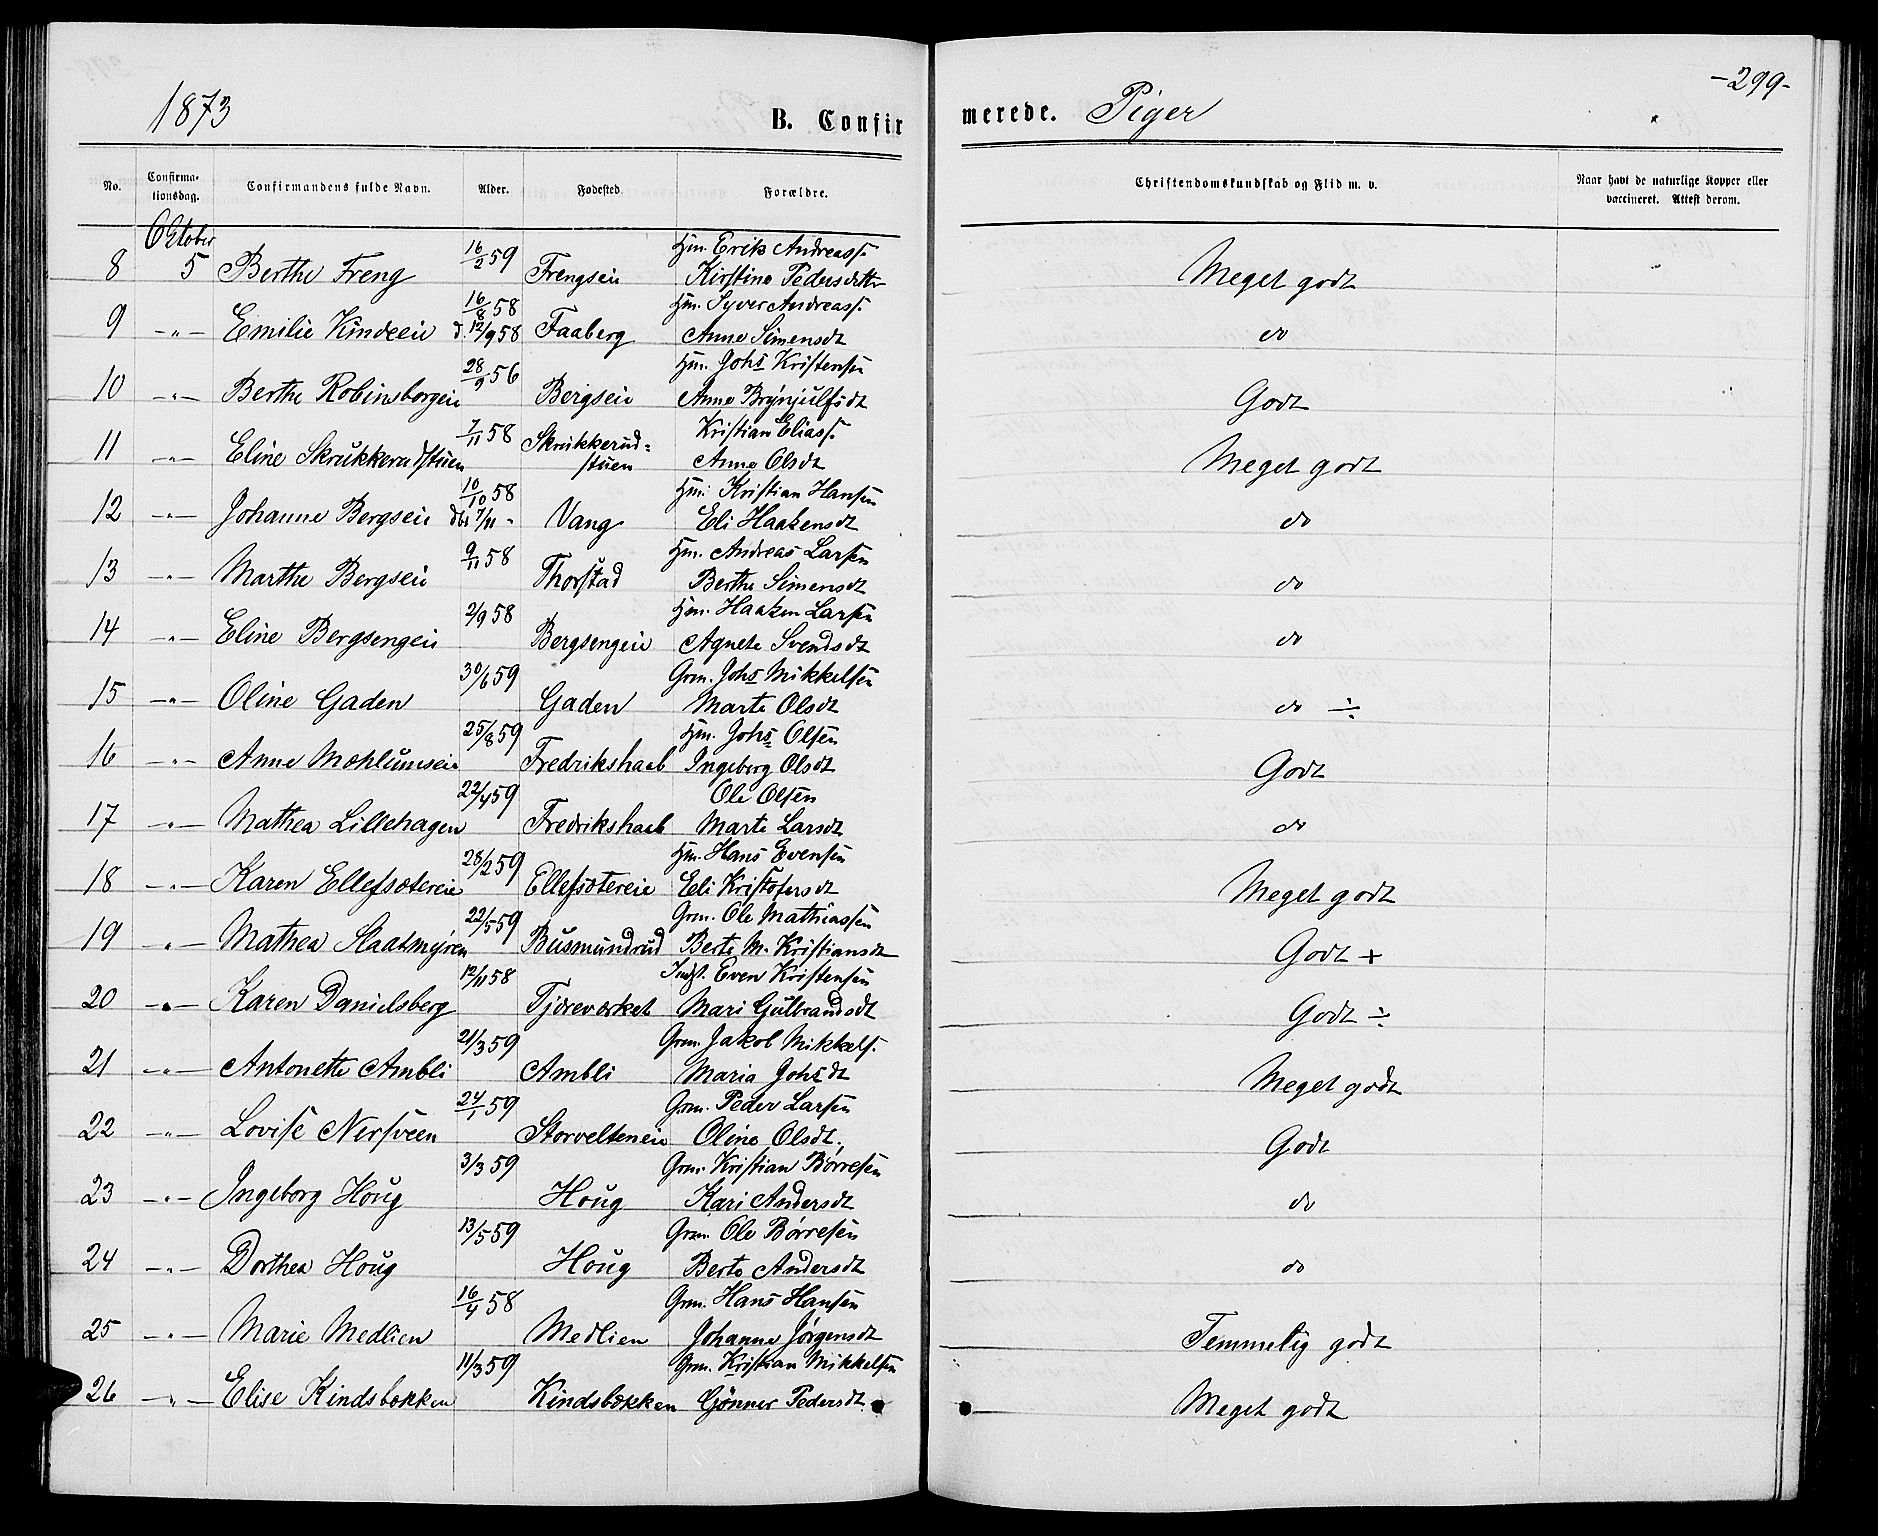 1873 B. Confirmerede. Piger -299-
No. Confirmationsdag. Confirmandens fulde Navn. Alder. Fødested. Forældre. Christendomskundskab og Flid m. v. Naar havt de naturlige Kopper eller vaccineret. Attest derom.
October
16/2 59 Hm. Erik Andreass.
8 5 Berthe Freng Frengseie Kirstine Pedersdatter Meget godt
16/8 58 Hm. Syver Andreass.
9 -"- Emilie Kindeeie d. 12/9 58 Faaberg Anne Simensdt do
28/9 56 Hm. Johs Kristensen
10 -"- Berthe Robinsborgeie Bergseie Anne Brynjulfsdt Godt
7/11 58 Kristian Eliass.
11 -"- Eline Skrukkerudstuen Skrukkerud=stuen Anne Olsdt Meget godt
10/10 58 Hm. Kristian Hansen
12 -"- Johanne Bergseie dbt 7/11 - Vang Eli Haakensdt do
9/11 58 Hm. Andreas Larsen
13 -"- Marthe Bergseie Thorstad Berthe Simensdt do
2/9 58 Hm. Haaken Larsen
14 -"- Eline Bergsengeie Bergsengeie Agnete Svendsdt do
30/6 59 Grm. Johs Mikkelsen
15 -"- Oline Gaden Gaden Marte Olsdt do ÷
25/8 59 Hm. Johs Olsen
16 -"- Anne Mæhlumseie Fredrikshaab Ingeborg Olsdt Godt
22/4 59 Ole Olsen
17 -"- Mathea Lillehagen Fredrikshaab Marte Larsdt do
28/2 59 Hm. Hans Evensen
18 -"- Karen Ellefsætereie Ellefsætereie Eli Kristofersdt Meget godt
22/5 59 Grm. Ole Mathiassen
19 -"- Mathea Slaatmyren Busmundrud Berte M. Kristiansdt Godt +
12/11 58 Indst. Even Kristensen
20 -"- Karen Danielsberg Tjæreværket Mari Gulbrandsdt Godt ÷
21/3 59 Grm. Jakob Mikkels.
21 -"- Antonette Ambli Ambli Maria Johsdt Meget godt
24/1 59 Grm. Peder Larsen
22 -"- Lovise Nersveen Storvelteneie Oline Olsdt. Godt
3/3 59 Grm. Kristian Børresen
23 -"- Ingeborg Houg Houg Kari Andersdt do
13/5 59 Grm. Ole Børresen
24 -"- Dorthea Houg Houg Berte Andersdt do
16/4 58 Grm. Hans Hansen
25 -"- Marie Medlien Medlien Johanne Jørgensdt Temmelig godt
11/3 59 Grm. Kristian Mikkelsen
26 -"- Elise Kindsbækken Kindsbækken Gønner Pedersdt. Meget godt